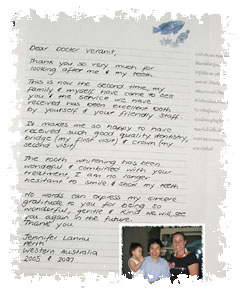 Dear Doctor Veranit,
Thank you so very much for
looking after me & my teeth.
This is now the second time, my
family & myself have come to see
you & the service we have
received has been excellent both
by yourself & your friendly staff.
It makes me so happy to have
received such good quality dentistry,
bridge (my first visit) & crown (my
second visit).
The tooth whitening has been
wonderful & combined with your
treatment, I am no longer
hesitant to smile & show my teeth
No words can express my sincere
gratitude to you for being so
wonderful, gentle & kind we will see
you again in the future.
Thank you
Jennifer
Perth
Western Australia
2005 & 2007